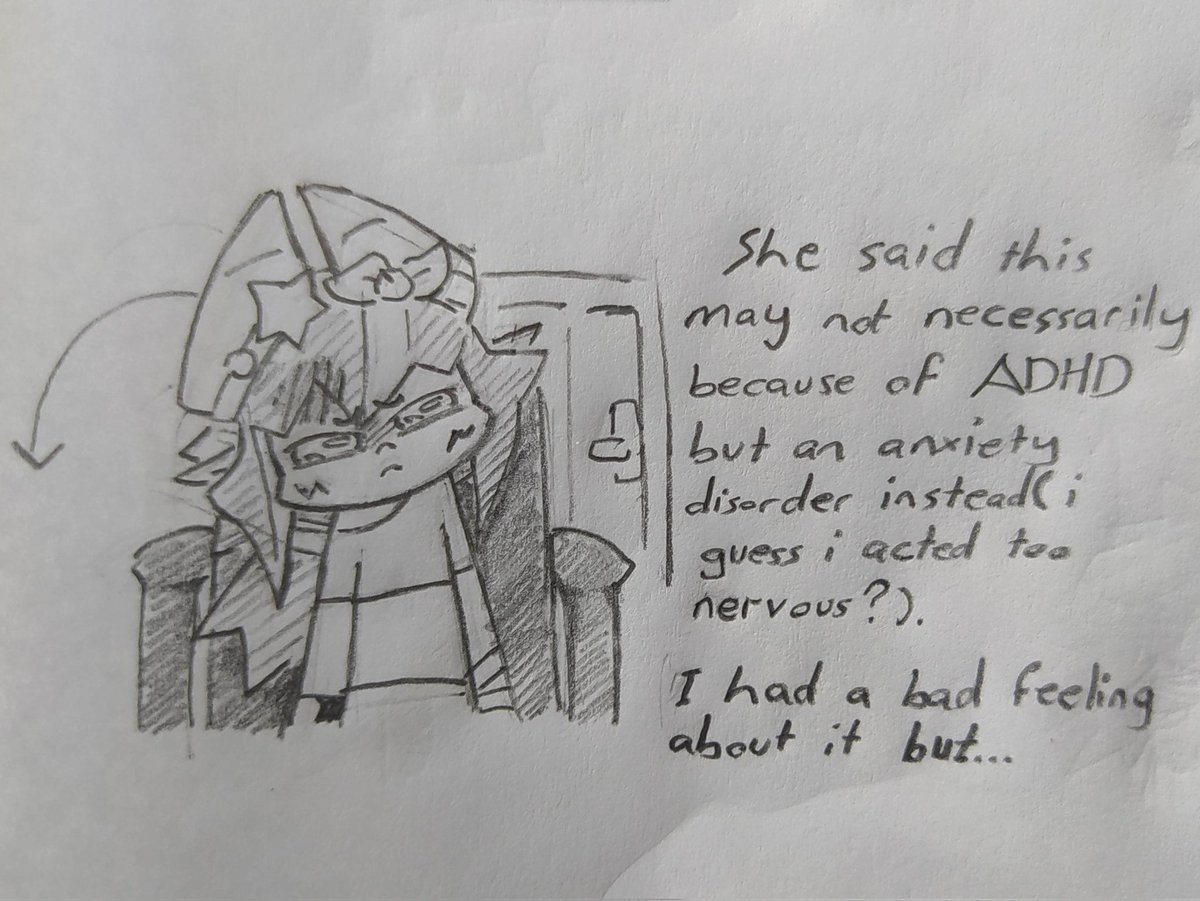 She said this
may not necessarily
because of ADHD
but an anxiety
disorder instead(i
guess i acted too
nervous?).
I had a bad feeling
about it but...